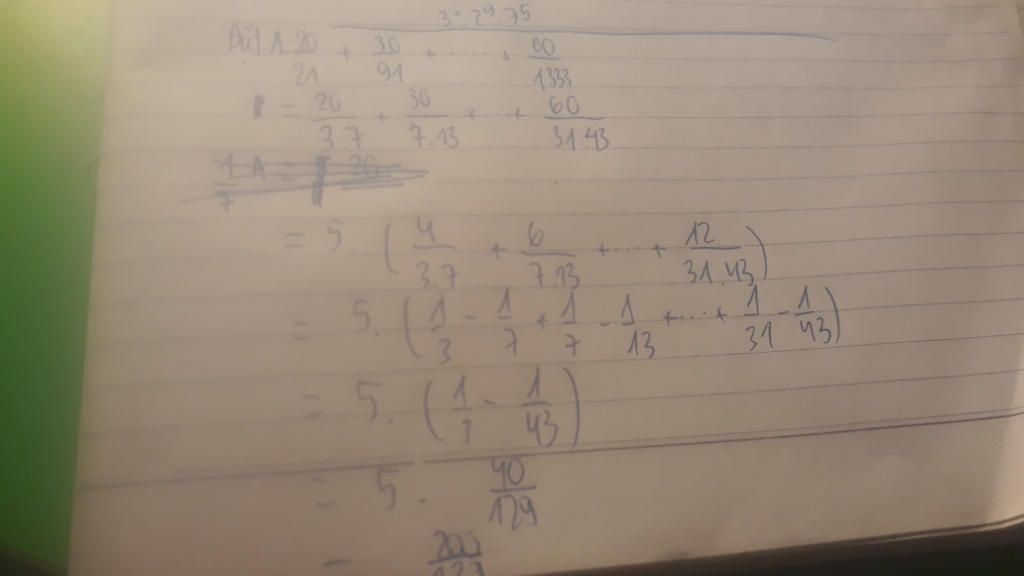 3 . 29.75
Đặt A = 20/21 + 30/91 + ..... + 60/1333
= 20/3.7 + 30/7.13 + ... + 60/31.43
1/7 A = 20
= 5. (4/3.7 + 6/7.13 + ... + 12/31.43)
= 5. (1/3 - 1/7 + 1/7 - 1/13 + ... + 1/31 - 1/43)
= 5. (1/3 - 1/43)
= 5 . 40/129
= 200